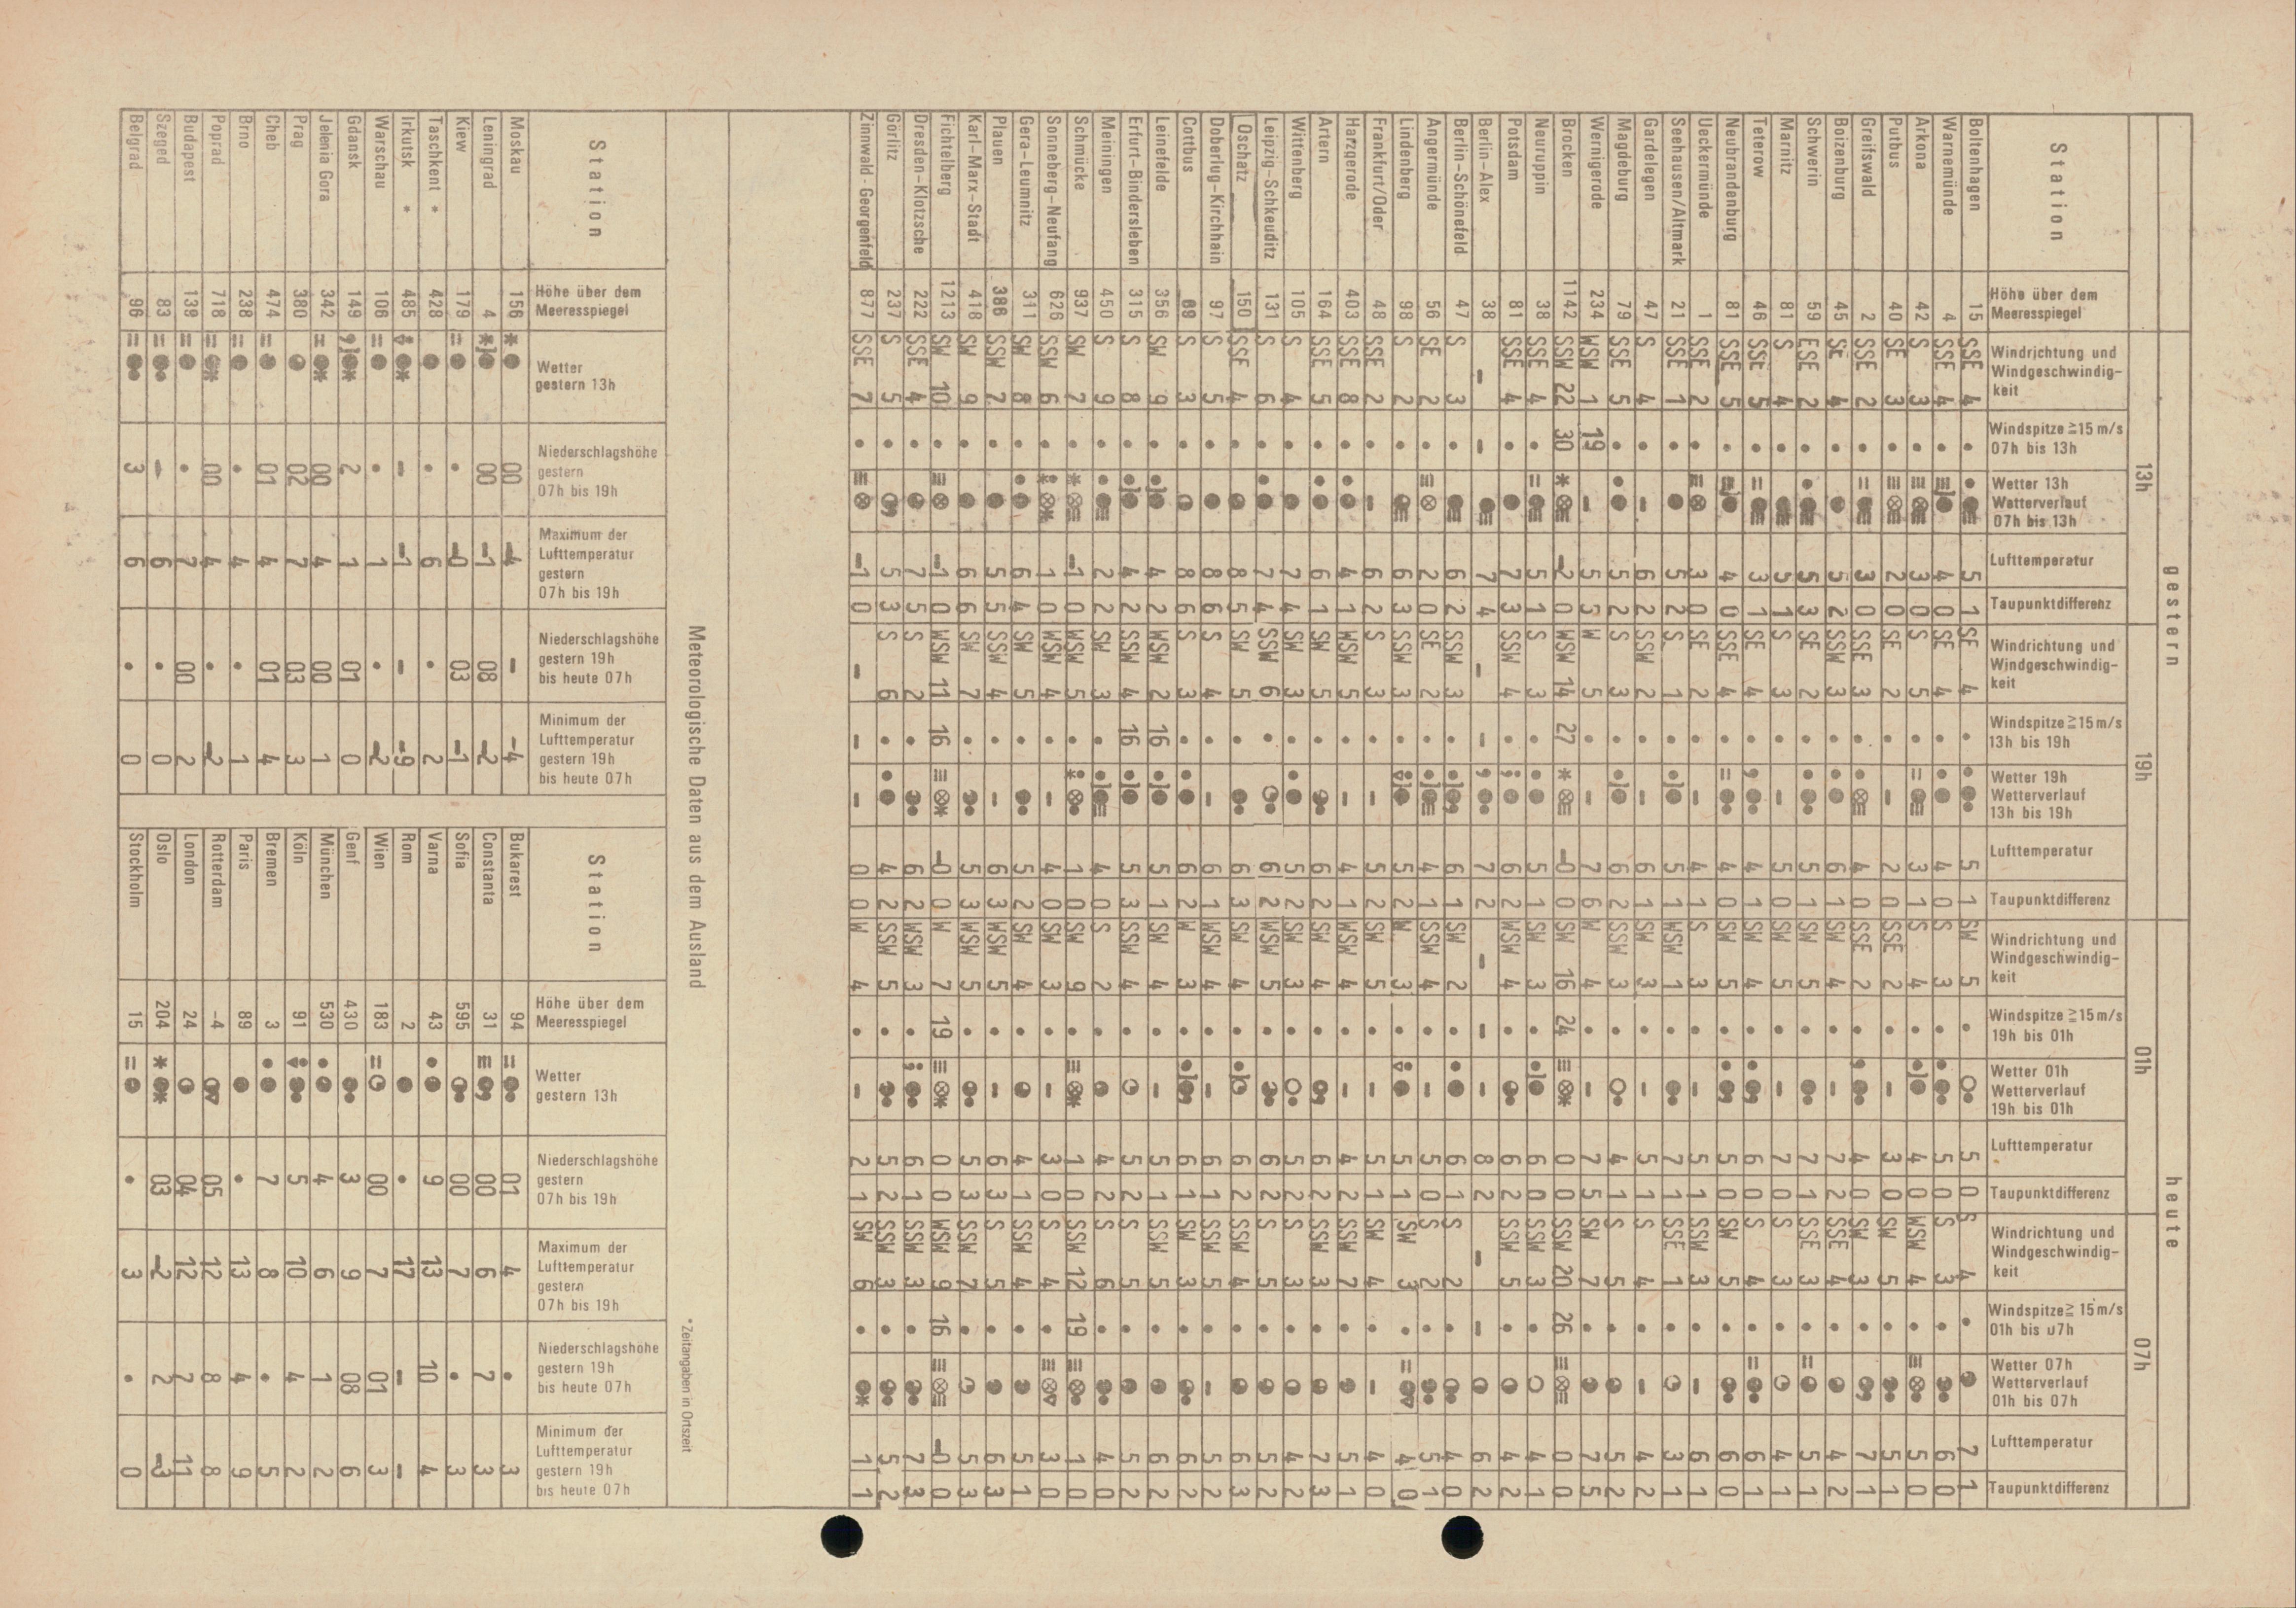 gestern heute
13h 19h 01h 07h
Station
Höhe über dem
Meeresspiegel
Windrichtung und
Windgeschwindig-
keit
Windspitze ≧ 15 m/s
07h bis 13h
Wetter 13h
Wetterverlauf
07h bis 13h
Lufttemperatur
Taupunktdifferenz
Windrichtung und
Windgeschwindig-
keit
Windspitze ≧ 15 m/s
13h bis 19h
Wetter 19h
Wetterverlauf
13h bis 19h
Lufttemperatur
Taupunktdifferenz
Windrichtung und
Windgeschwindig-
keit
Windspitze ≧ 15 m/s
19h bis 01h
Wetter 01h
Wetterverlauf
19h bis 01h
Lufttemperatur
Taupunktdifferenz
Windrichtung und
Windgeschwindig-
keit
Windspitze ≧ 15 m/s
01h bis 07h
Wetter 07h
Wetterverlauf
01h bis 07h
Lufttemperatur
Taupunktdifferenz
Boltenhagen 15 SSE 4 • 5 1 SE 4 • 5 1 SW 5 • 5 0 S 4 • 7 1
Warnemünde 4 SSE 4 • 4 0 SE 4 • 4 0 S 3 • 5 0 S 3 • 6 0
Arkona 42 S 3 • 3 0 S 5 • 3 1 S 4 • 4 0 WSW 4 • 5 0
Putbus 40 SE 3 • 2 0 SE 2 • 2 0 SSE 2 • 3 0 SW 5 • 5 1
Greifswald 2 SSE 2 • 3 0 SSE 3 • 4 0 SSE 2 • 4 0 SW 3 • 7 1
Boizenburg 45 SE 4 • 5 2 SSW 3 • 6 1 SW 4 • 7 2 SSE 4 • 4 2
Schwerin 59 ESE 2 • 5 3 SE 2 • 5 1 SW 5 • 7 1 SSE 3 • 5 1
Marnitz 81 S 4 • 5 1 S 3 • 5 0 SW 5 • 7 0 S 3 • 4 1
Teterow 46 SSE 5 • 3 1 SE 4 • 4 1 SW 4 • 6 0 S 4 • 6 1
Neubrandenburg 81 SSE 5 • 4 0 SSE 4 • 4 0 SW 5 • 5 0 SW 5 • 6 0
Ueckermünde 1 SSE 2 • 3 0 S 2 • 4 1 S 3 • 5 1 SSW 3 • 6 1
Seehausen/Altmark 21 SSE 1 • 5 2 S 1 • 5 1 WSW 1 • 7 1 SSE 1 • 3 1
Gardelegen 47 S 4 • – 6 2 SSW 2 • – 6 1 SW 3 • – 5 1 S 4 • – 4 2
Magdeburg 79 SSE 5 • 5 2 S 3 • 6 2 SSW 3 • 4 1 S 5 • 5 2
Wernigerode 234 WSW 1 19 – 5 5 W 5 • – 7 6 W 4 • – 7 5 SW 7 • 7 5
Brocken 1142 SSW 22 30 –2 0 WSW 14 27 –0 0 SW 16 24 0 0 SSW 20 26 0 0
Neuruppin 38 SSE 4 • 5 1 S 3 • 5 1 SW 3 • 6 0 SSW 3 • 4 2
Potsdam 81 SSE 4 • 7 3 SSW 4 • 6 2 WSW 4 • 6 2 SSW 5 • 4 2
Berlin-Alex 38 – – 7 4 – – 7 2 – – 8 2 – – 6 2
Berlin-Schönefeld 47 S 3 • 6 2 SSW 3 • 6 1 SW 2 • 6 1 S 2 • 4 0
Angermünde 56 SE 2 • 2 0 SE 2 • 4 1 SSW 4 • 5 0 S 2 • 5 1
Lindenberg 98 S 2 • 6 3 SSW 3 • 5 2 W 3 • 5 1 SW 3 • 4 0
Frankfurt/Oder 48 SSE 2 • – 6 2 S 3 • – 5 2 SW 5 • – 5 1 SW 4 • – 4 0
Harzgerode 403 SSE 8 • 4 1 WSW 5 • – 4 1 WSW 4 • – 4 2 SSW 7 • 5 1
Artern 164 SSE 5 • 6 1 SW 5 • 6 2 SW 4 • 6 2 SSW 3 • 7 3
Wittenberg 105 S 4 • 7 4 SW 3 • 5 2 SW 3 • 5 2 S 3 • 4 2
Leipzig-Schkeuditz 131 S 6 • 7 4 SSW 6 • 6 2 WSW 5 • 6 2 S 5 • 5 2
Oschatz 150 SSE 4 • 8 5 SW 5 • 6 3 SW 4 • 6 2 SSW 4 • 6 3
Doberlug-Kirchhain 97 S 5 • 8 6 S 4 • – 6 1 WSW 4 • – 6 1 SSW 5 • – 5 2
Cottbus 69 S 3 • 8 6 S 3 • 6 2 W 3 • 6 1 SW 3 • 6 2
Leinefelde 356 SW 9 • 4 2 WSW 2 16 5 1 SW 4 • – 5 1 SSW 5 • 6 2
Erfurt-Bindersleben 315 S 8 • 4 2 SSW 4 16 5 3 SSW 4 • 5 2 S 5 • 5 2
Meiningen 450 S 9 • 2 2 SW 3 • 4 0 S 2 • 4 2 S 6 • 4 0
Schmücke 937 SW 7 • –1 0 WSW 5 • 1 0 SW 9 • 1 0 SSW 12 19 1 0
Sonneberg-Neufang 626 SSW 6 • 1 0 WSW 4 • – 4 0 SW 3 • – 3 0 S 4 • 3 0
Gera-Leumnitz 311 SW 8 • 6 4 SW 5 • 5 2 SW 4 • 4 1 SSW 4 • 5 1
Plauen 386 SSW 7 • 5 5 SSW 4 • – 6 3 WSW 5 • – 6 3 S 5 • 6 3
Karl-Marx-Stadt 418 SW 9 • 6 6 SW 7 • 5 3 WSW 5 • 5 3 SSW 7 • 5 3
Fichtelberg 1213 SW 10 • –1 0 WSW 11 16 –0 0 W 7 19 0 0 WSW 9 16 –0 0
Dresden-Klotzsche 222 SSE 4 • 7 5 S 2 • 6 2 WSW 3 • 6 1 SSW 3 • 7 3
Görlitz 237 S 5 • 5 3 S 6 • 4 2 SSW 5 • 5 2 SSW 3 • 5 2
Zinnwald-Georgenfeld 877 SSE 7 • –1 0 – – – 0 0 W 4 • – 2 1 SW 6 • 1 1
Meteorologische Daten aus dem Ausland
*Zeitangaben in Ortszeit
Station
Höhe über dem
Meeresspiegel
Wetter
gestern 13h
Niederschlagshöhe
gestern
07h bis 19h
Maximum der
Lufttemperatur
gestern
07h bis 19h
Niederschlagshöhe
gestern 19h
bis heute 07h
Minimum der
Lufttemperatur
gestern 19h
bis heute 07h
Moskau 156 00 –4 – –4
Leningrad 4 00 –1 08 –2
Kiew 179 • –0 03 –1
Taschkent * 428 • 6 • 2
Irkutsk * 485 – –1 – –9
Warschau 106 • 1 • –2
Gdansk 149 2 1 01 0
Jelenia Gora 342 00 4 00 1
Prag 380 02 7 03 3
Cheb 474 01 4 01 4
Brno 238 • 4 • 1
Poprad 718 00 4 • –2
Budapest 139 • 7 00 2
Szeged 83 – 6 • 0
Belgrad 96 3 6 • 0
Station
Höhe über dem
Meeresspiegel
Wetter
gestern 13h
Niederschlagshöhe
gestern
07h bis 19h
Maximum der
Lufttemperatur
gestern
07h bis 19h
Niederschlagshöhe
gestern 19h
bis heute 07h
Minimum der
Lufttemperatur
gestern 19h
bis heute 07h
Bukarest 94 01 4 • 3
Constanta 31 00 6 7 3
Sofia 595 00 7 • 3
Varna 43 9 13 10 4
Rom 2 • 17 – –
Wien 183 00 7 01 3
Genf 430 3 9 08 6
München 530 4 6 1 2
Köln 91 5 10 4 2
Bremen 3 7 8 • 5
Paris 89 • 13 4 9
Rotterdam -4 05 12 8 8
London 24 04 12 7 11
Oslo 204 03 –2 2 –3
Stockholm 15 • 3 • 0